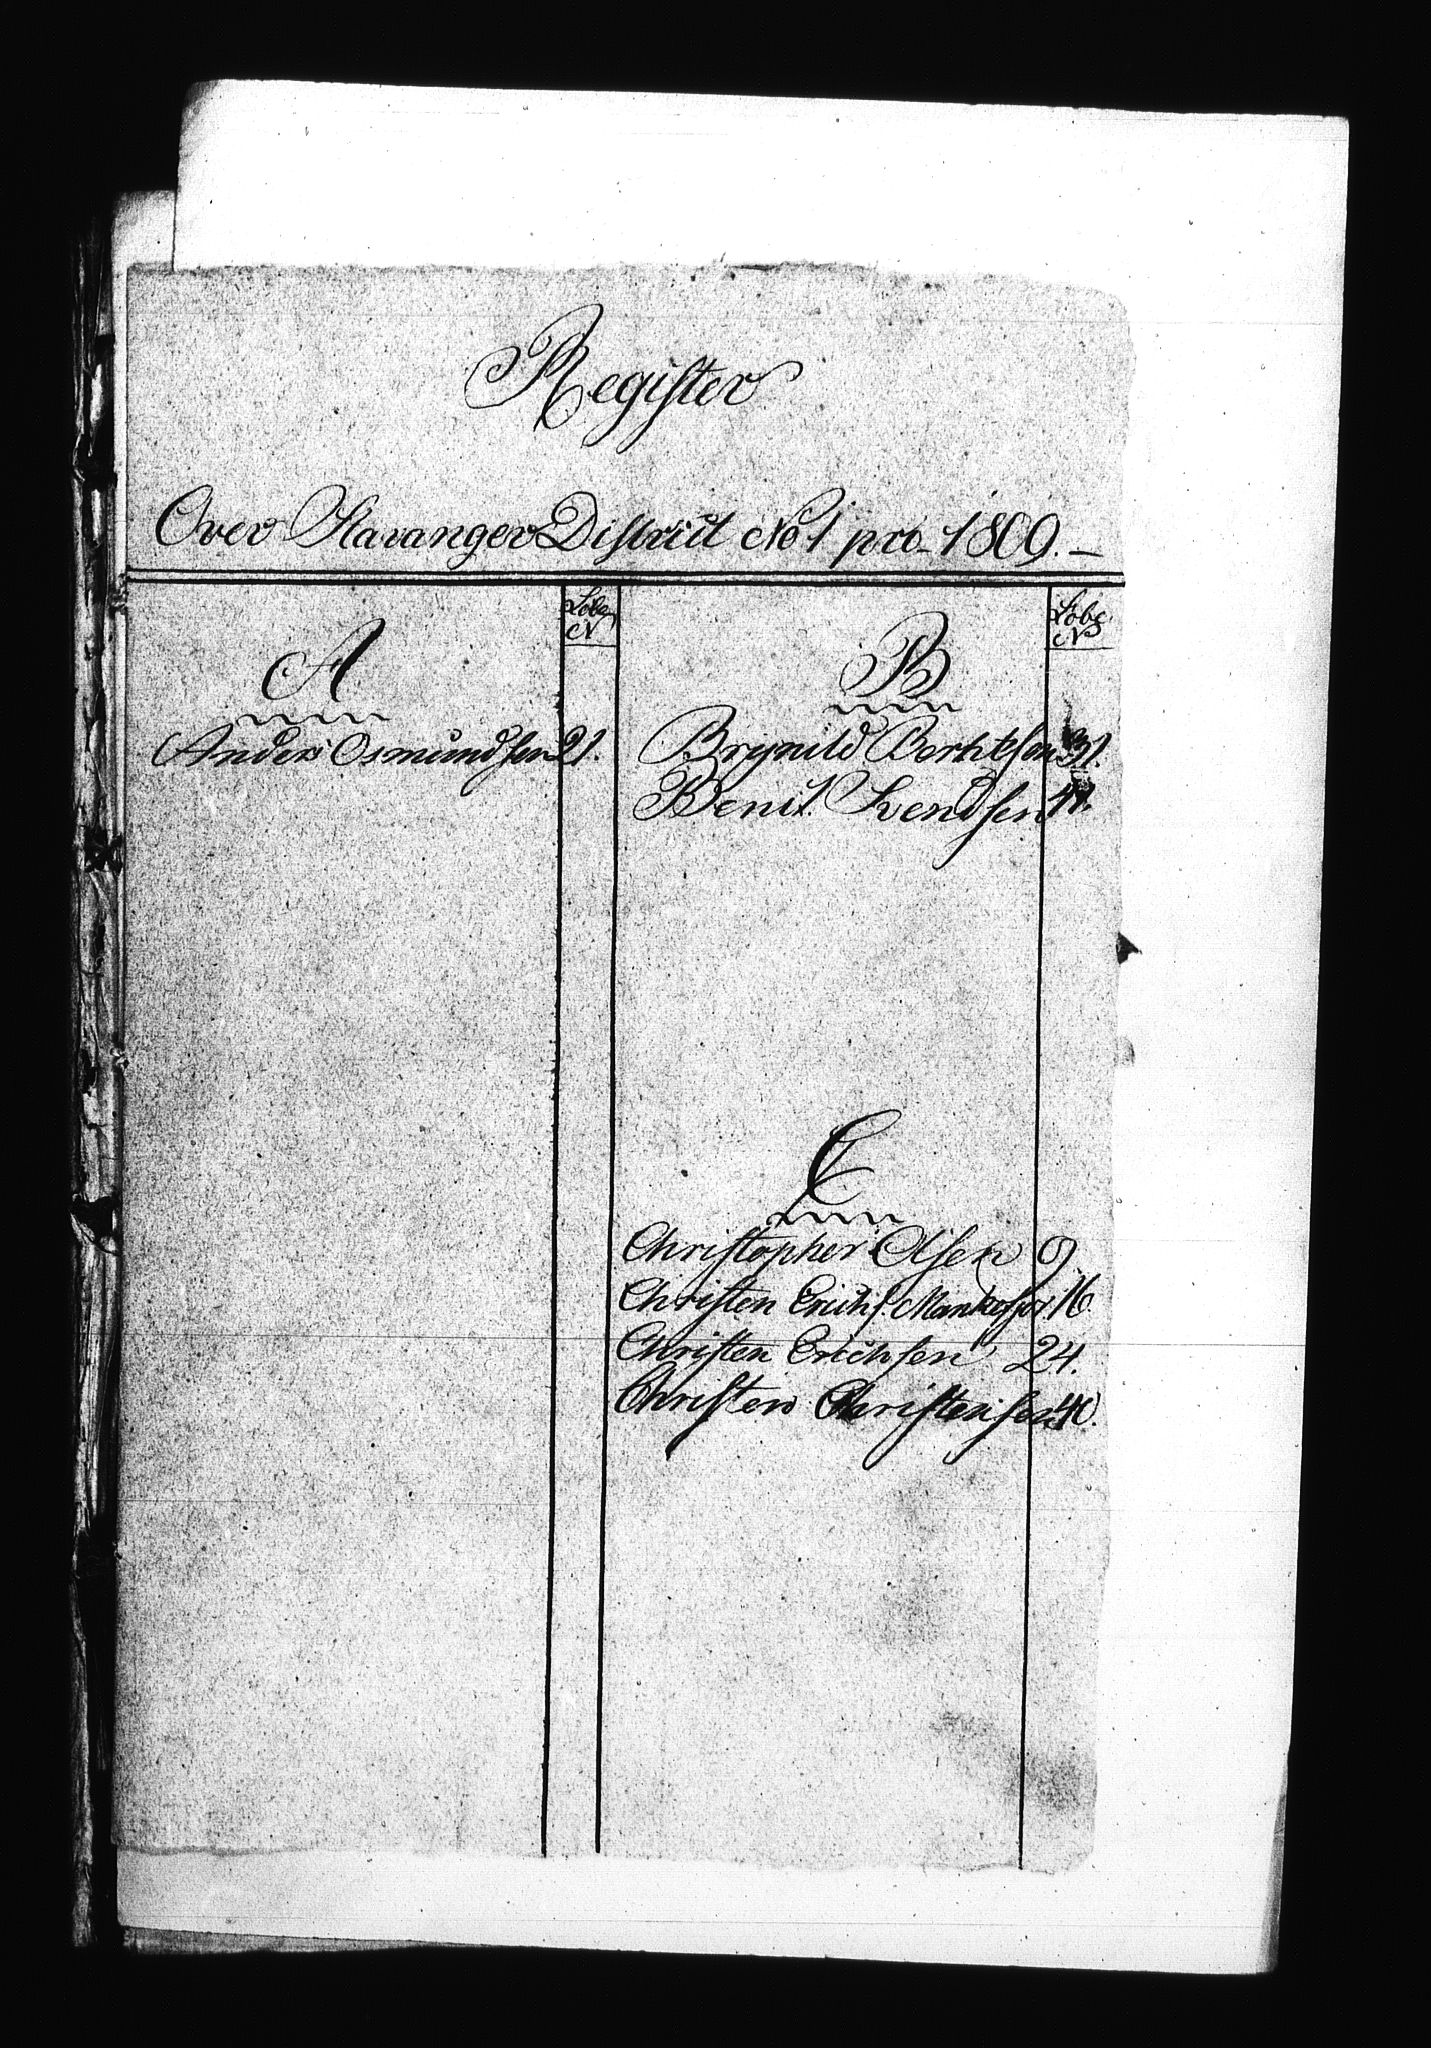 Register
Over Stavanger District No 1 pro 1809.
Løbe N
A
Anders Osmundsen 21.
Løbe N
B
Brynild 31.
Benit Svendsen 41.
C
Christopher Olsen 9.
Christen Erichs. 16
Christen Erichsen 24.
Christen Christensen 40.